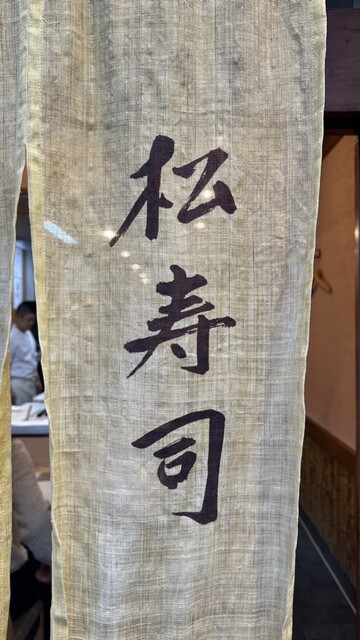 松寿司